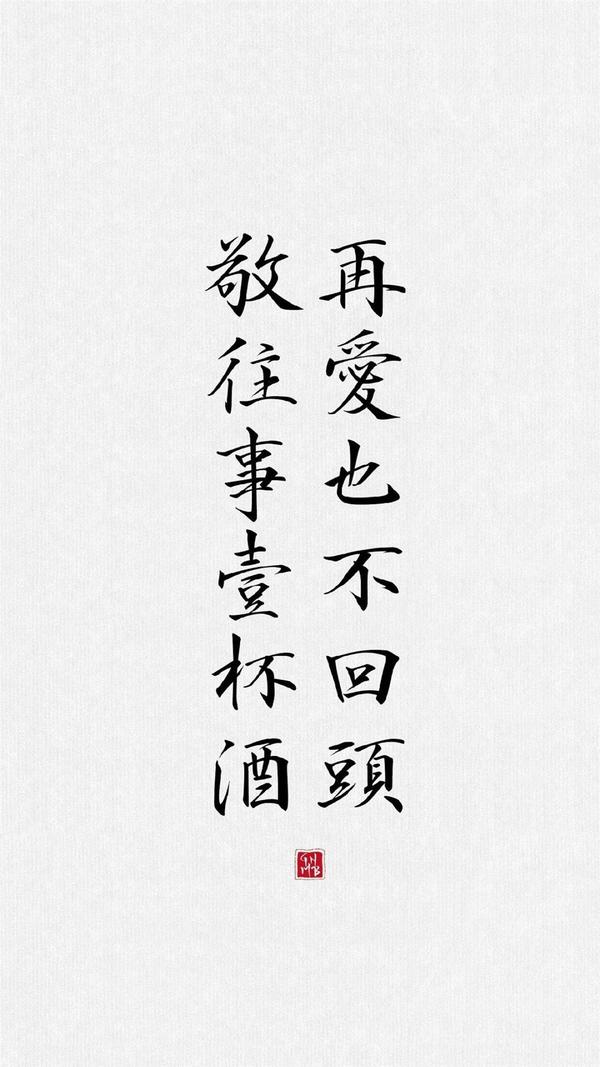 敬往事壹杯酒
再愛也不回頭